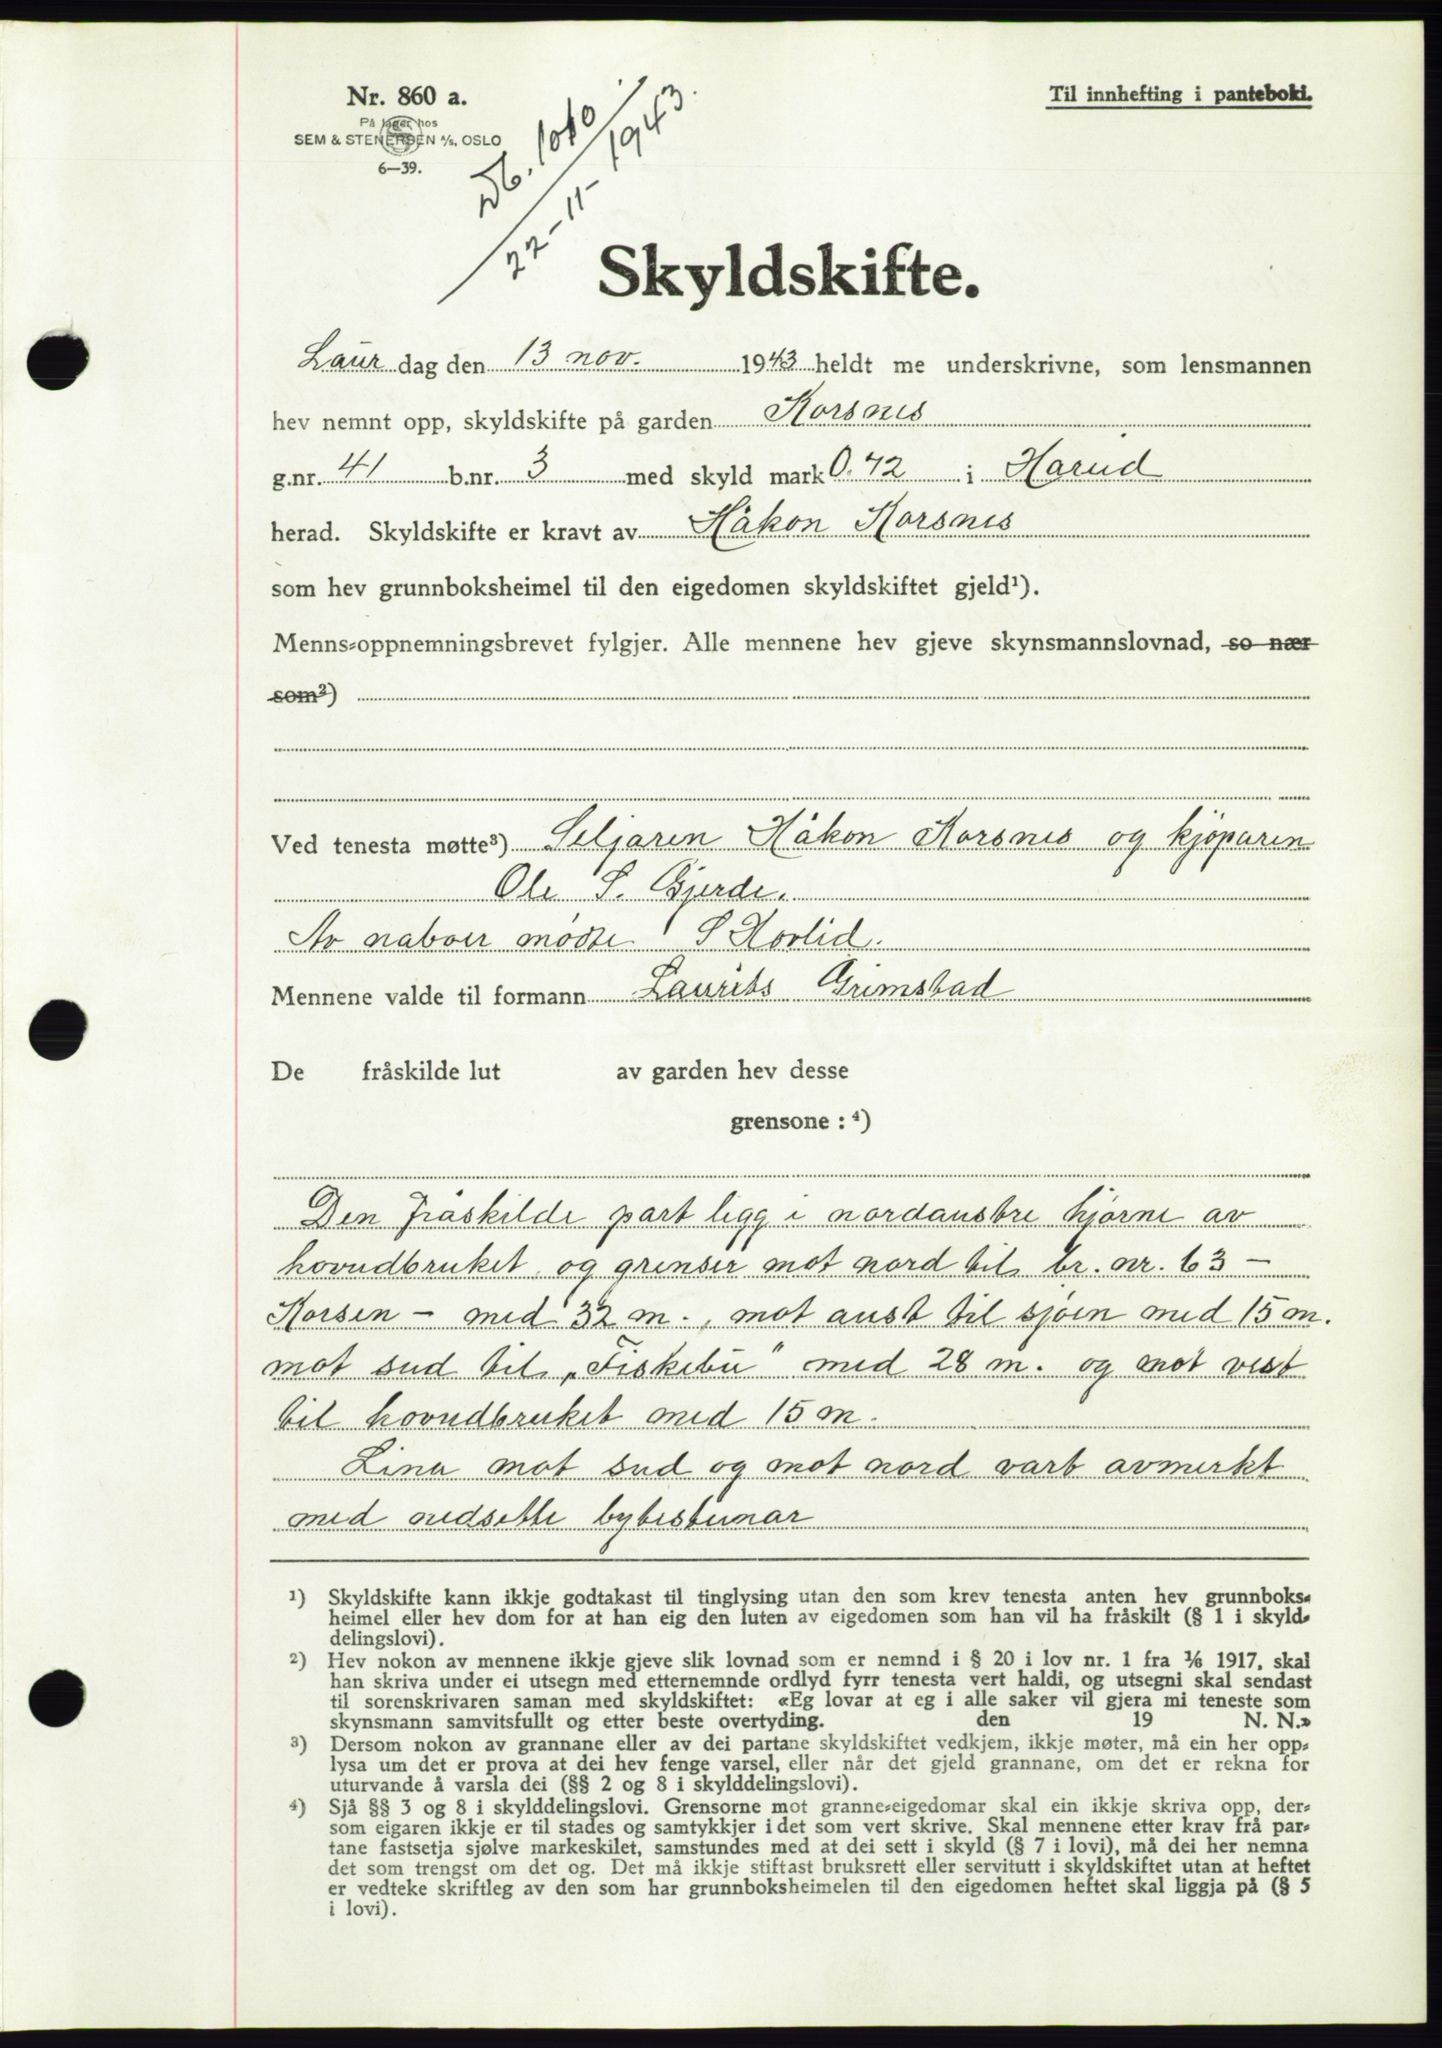 Nr. 860 a.
På lager hos
SEM & STENERSEN A/S, OSLO
6—39.
Til innhefting i panteboki.
Db. 1010
22-11-1943.
Skyldskifte.
Laur dag den 13 nov. 1943 heldt me underskrivne, som lensmannen
hev nemnt opp, skyldskifte på garden Korsnes
g.nr. 41 b.nr. 3 med skyld mark 0.72 i Hareid
herad. Skyldskifte er kravt av Håkon Korsnes
som hev grunnboksheimel til den eigedomen skyldskiftet gjeld¹).
Menns-oppnemningsbrevet fylgjer. Alle mennene hev gjeve skynsmannslovnad, so nær
som²)
Ved tenesta møtte³) Seljaren Håkon Korsnes og kjöparen
Ole S. Gjerde.
Av naboer mødte S Hovlid.
Mennene valde til formann Laurits Grimstad
De fråskilde lut av garden hev desse
grensone : ⁴)
Den fråskilde part ligg i nordaustre hjørne av
hovudbruket og grenser mot nord til br. nr. 63 —
Korsen — med 32 m., mot aust til sjöen med 15 m.
mot sud til „Fiskebu" med 28 m. og mot vest
til hovudbruket med 15 m.
Lina mot sud og mot nord vart avmerkt
med nedsette bytesteinar
¹) Skyldskifte kann ikkje godtakast til tinglysing utan den som krev tenesta anten hev grunnboks-
heimel eller hev dom for at han eig den luten av eigedomen som han vil ha fråskilt (§ 1 i skyld-
delingslovi).
²) Hev nokon av mennene ikkje gjeve slik lovnad som er nemnd i § 20 i lov nr. 1 fra 1/6 1917, skal
han skriva under ei utsegn med etternemnde ordlyd fyrr tenesta vert haldi, og utsegni skal sendast
til sorenskrivaren saman med skyldskiftet: «Eg lovar at eg i alle saker vil gjera mi teneste som
skynsmann samvitsfullt og etter beste overtyding. den 19 N. N.»
³) Dersom nokon av grannane eller av dei partane skyldskiftet vedkjem, ikkje møter, må ein her opp-
lysa um det er prova at dei hev fenge varsel, eller når det gjeld grannane, om det er rekna for
uturvande å varsla dei (§§ 2 og 8 i skylddelingslovi).
⁴) Sjå §§ 3 og 8 i skylddelingslovi. Grensorne mot granne-eigedomar skal ein ikkje skriva opp, der-
som eigaren ikkje er til stades og samtykkjer i det som vert skrive. Skal mennene etter krav frå par-
tane fastsetja sjølve markeskilet, samstundes med at dei sett i skyld (§ 7 i lovi), må dei her nemna
det som trengst om det og. Det må ikkje stiftast bruksrett eller servitutt i skyldskiftet utan at heftet
er vedteke skriftleg av den som har grunnboksheimelen til den eigedomen heftet skal liggja på (§ 5
i lovi).